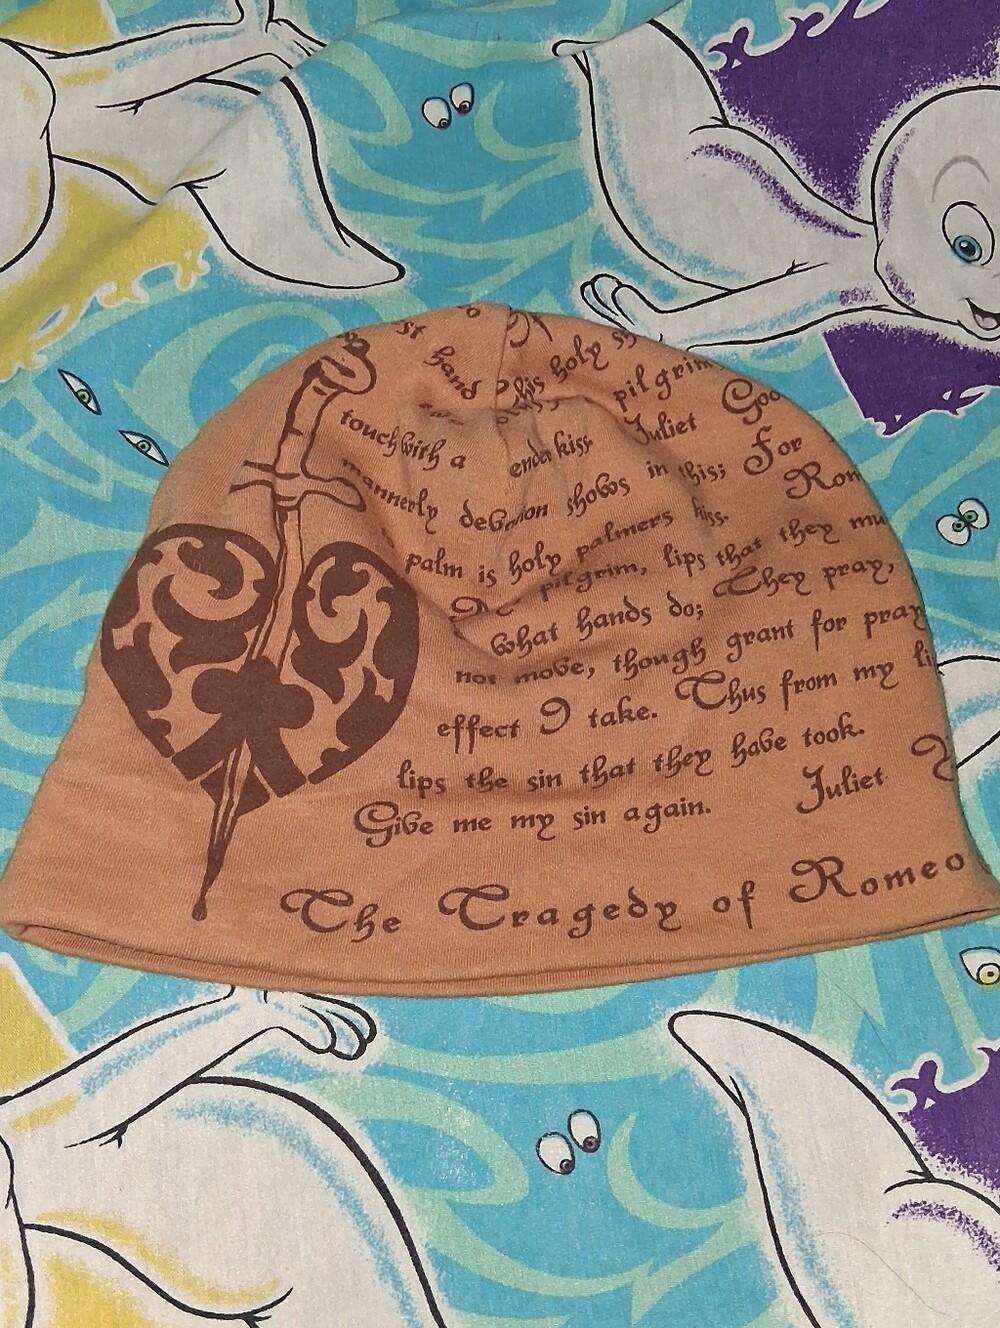 st hand
his holy
pilgrim
Goo
touch with a
kiss
Juliet
For
mannerly devotion shows in this;
Rom
palm is holy palmers kiss.
pilgrim, lips that they mu
what hands do; They pray,
not move, though grant for pray
effect I take. Thus from my li
lips the sin that they have took.
Give me my sin again.
Juliet
The Tragedy of Romeo